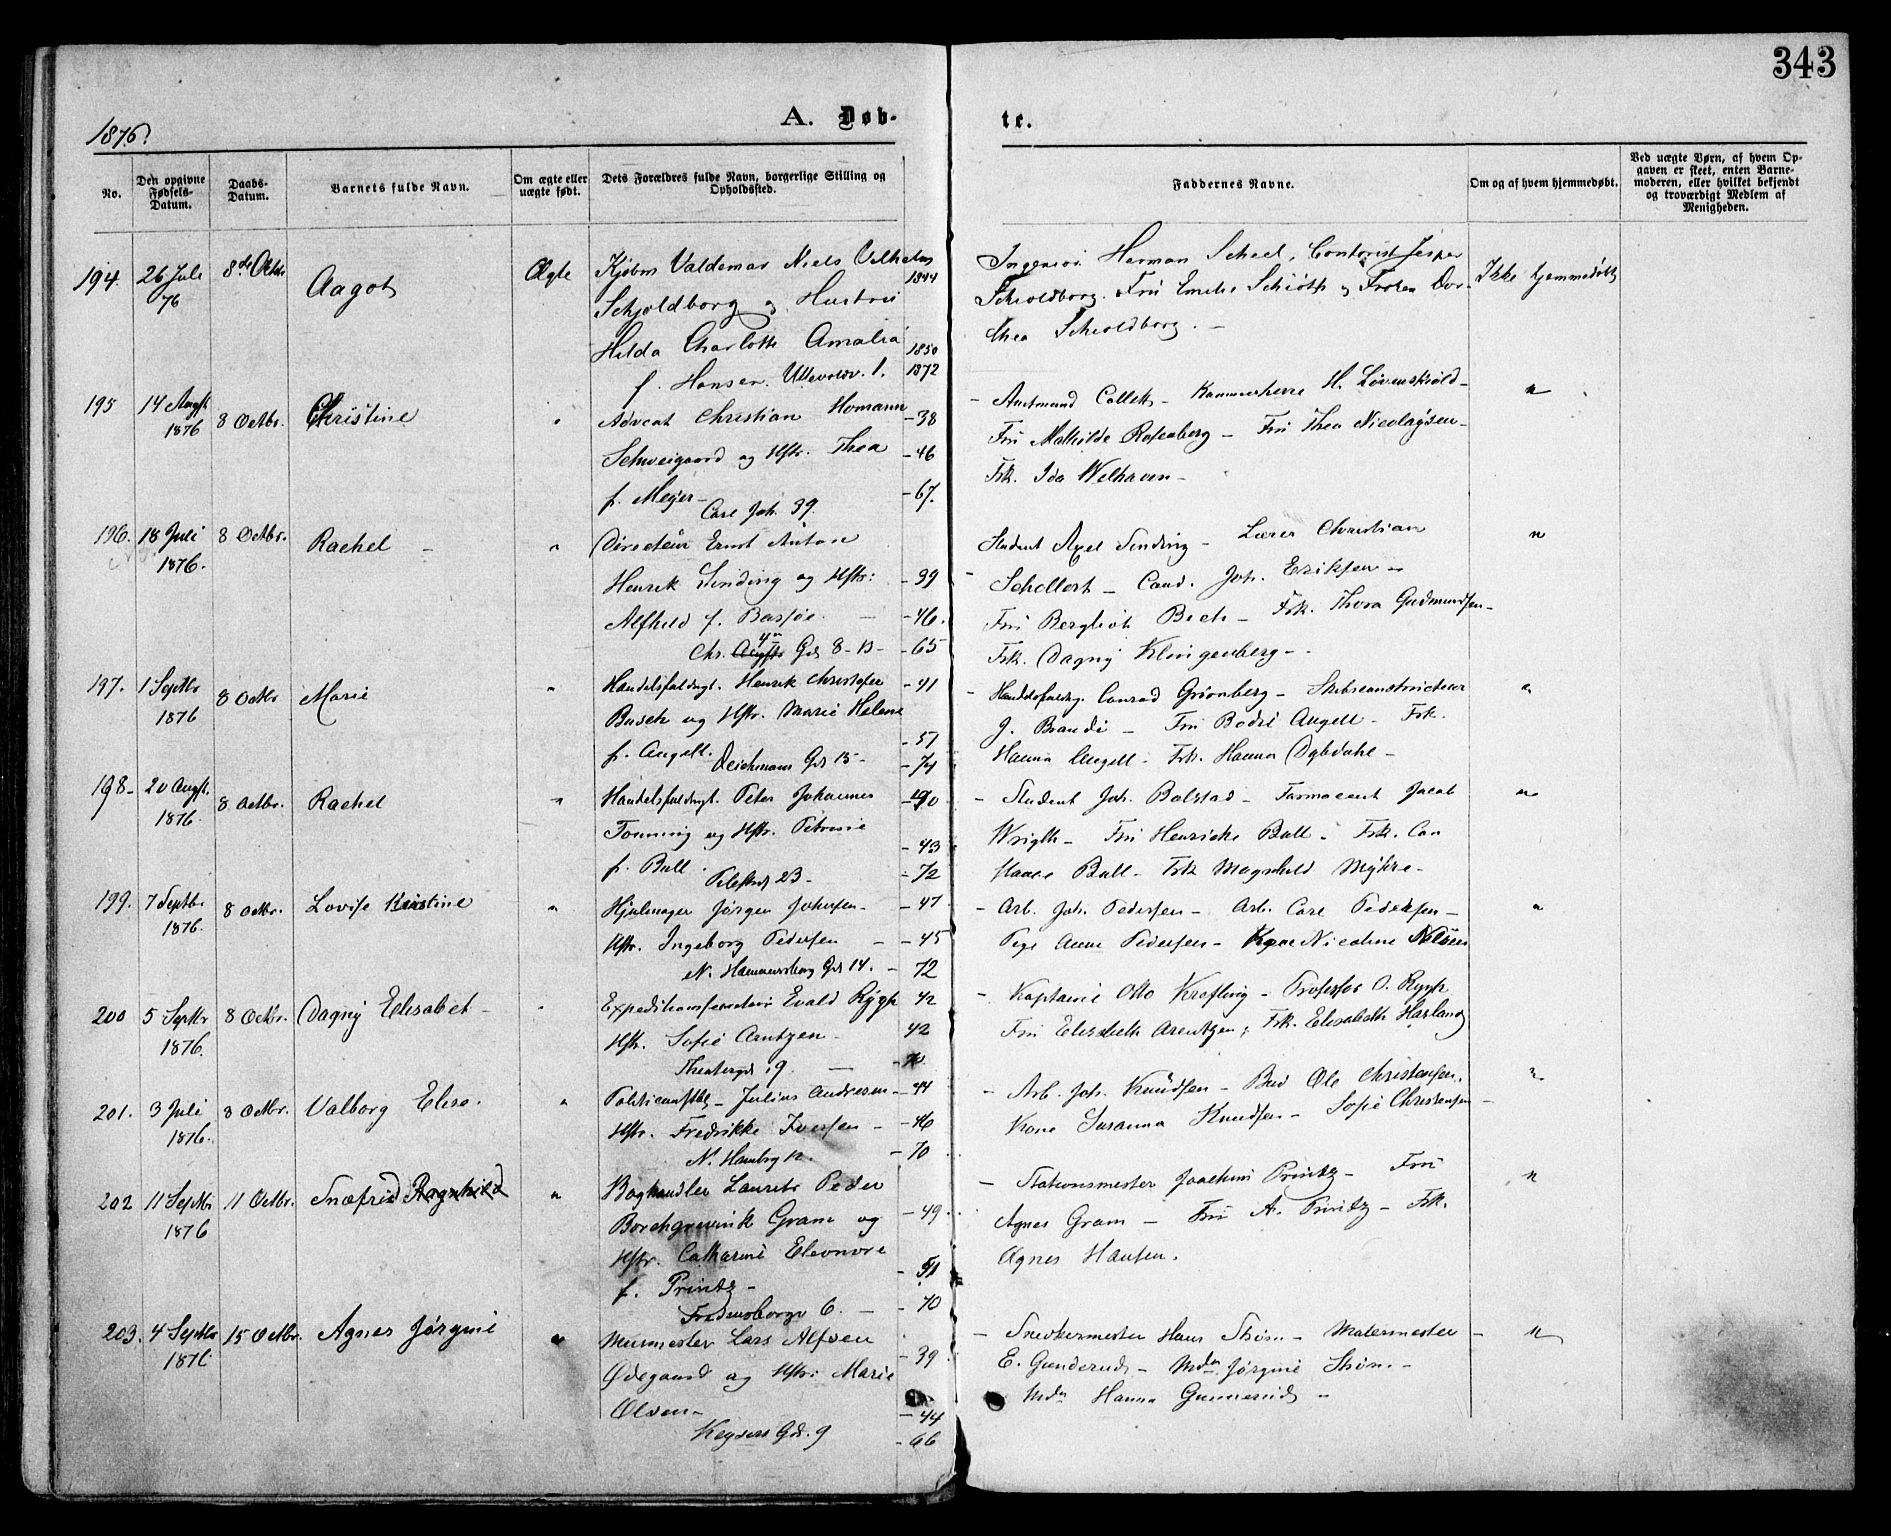 343
1876.
A. Døb- te.
No. Den opgivne Fødsels- Datum. Daabs- Datum. Barnets fulde Navn. Om ægte eller uægte født. Dets Forældres fulde Navn, borgerlige Stilling og Opholdssted. Faddernes Navne. Om og af hvem hjemmedøbt. Ved uægte Børn, af hvem Op- gaven er skeet, enten Barne- moderen, eller hvilket bekjendt og troværdigt Medlem af Menigheden.
194. 26 Juli 76 8de Octbr Aagot Ægte Kjøbm Valdemar Niels Vilhelm 1844
Schjoldborg og Hustru
Hilda Charlotte Amalia 1850
f. Hansen. Ullevoldsv. 1. 1872
Ingeniør Herman Scheel, Contorist Jesper
Schioldborg. Fru Emilie Schiøth og Frøken Dor-
thea Schioldborg. -
Ikke hjemmedøbt
195 14 Augst 1876 8 Octbr. Christine " Advocat Christian Homann - 38
Schweigaard og Hstr. Thea - 46
f. Meyer - - 67.
Carl Joh. 39.
- Amtmand Collett - Kammerherre H. Løvenskiold -
Fru Mathilde Rosenberg - Fru Thea Nicolaysen -
Frk. Ida Welhaven -
"
196. 18 Juli 1876. 8 Octbr. Rachel - " Directeur Ernst Anton
Henrik Sinding og Hstr: - 39
Alfhild f. Bassøe - - 46.
Chr. Augsts Gd 8 - B - - 65
Student Axel Sinding - Lærer Christian
- Schollert - Cand. Joh. Eriksen -
Fru Bergliot Bech - Frk. Thora Gudmundsen -
Frk. Dagny Klingenberg -
"
197. 1 Septbr 1876 8 Octbr Marie " Handelsfuldmgt. Henrik Christofer - 41
Busch og Hstr. Marie Helene
f. Angell. - 51
Deichmans Gd 15 - - 74
- Handelsfuldmg. Conrad Grønberg - Skibsconstructeur
J. Brandi - Fru Bodil Angell - Frk.
Hanna Angell - Frk. Hanna Dybdahl -
"
198 - 20 Augst. 1876. 8 Octbr. Rachel " Handelsfuldmgt. Peter Johannes - 40
Tonning og Hstr. Petrine - 43
f. Bull. - 72
Pilestrd 23 -
- Student Joh. Bolstad - Farmaceut Jacob
Wrigth - Fru Henricke Bull - Frk. Can
Bull - Frk Magnhild Myhre -
"
199. 7 Septbr. 1876. 8 Octbr. Lovise Kristine " Hjulmager Jørgen Johnsen - - 47
Hstr. Ingeborg Pedersen - - 45
N. Hammersborg Gd 14. - 72
- Arb. Joh. Pedersen - Arb. Carl Pedersen -
Pige Anne Pedersen - Kone Nicoline Nilsen
"
200 5 Septbr 1876. 8 Octbr. Dagny Elisabet - " Expeditionssecretær Evald Rygh 42
Hstr. Sofie Arntzen - 42
Theatergd 19. - - 70
- Kaptein Otto Krefting - Professor O. Rygh
Fru Elisabeth Arentzen, Frk. Elisabeth Harland
201. 3 Juli 1876. 8 Octbr. Valborg Elise. " Politiconstbl. - Julius Andresen - 44
Hstr. Fredrikke Iversen - - 46
N. Hambrg 12. - 70
- Arb. Joh. Knudsen - Bud Ole Christensen,
Kone Susanna Knudsen - Sofie Christensen -
"
202 11 Septbr 1876 11 Octbr. Snæfrid Ragnhild " Boghandler Laurits Peder
Borchgrevink Gram og - 49
Hstr. Catharine Eleonore
f. Printz - - 51
Fredensborgv 6. - - 70
- Stationsmester Joachim Printz - Fru
Agnes Gram - Fru A. Printz - Frk.
Agnes Hansen.
"
203. 4 Septbr 1876 15 Octbr. Agnes Jørgine " Murmester Lars Alfsen
Ødegaard og Hstr: Marie - 39
Olsen - - 44
Keysers Gd. 9 - 66
- Snedkermester Hans Strøm - Malermester -
E. Gunderud - Mdm Jørgine Strøm. -
Mdm Hanna Gunnerud -
"